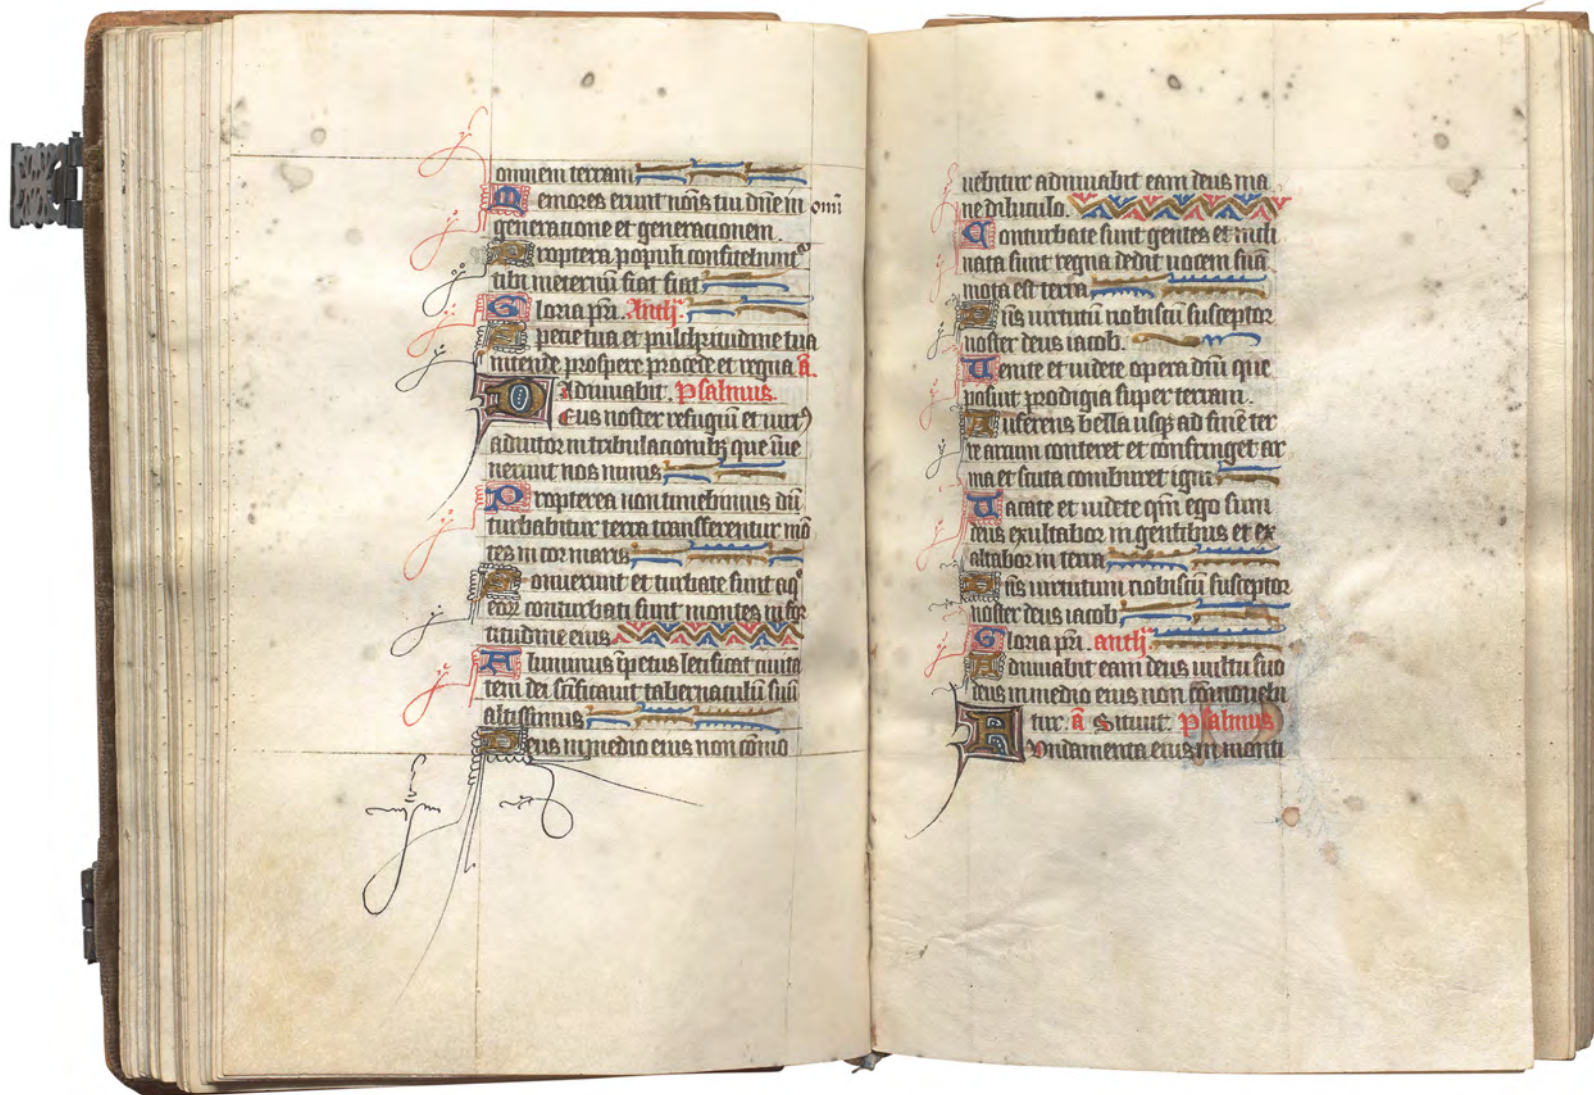 omnem terram
Memores erunt noı̅s tui dn̅e in om̅i
generatione et generationem.
Proptera populi confitebunt᷑
tibi ineternu̅ fiat fiat
Gloria pr̅i. Anth̅.
Specie tua et pulchritudine tua
intende prospere procede et regna a̅.
Adiuuabit. Psalmus.
Deus noster refugiu̅ et uirtꝰ
adiutor in tribulacionibꝫ que i̅ue
nerunt nos nimis
Propterea non timebimus du̅
turbabitur terra transferentur mo̅
tes in cor maris
Sonuerunt et turbate sunt aq̅
eoꝝ conturbati sunt montes in for
titudine eius
Fluminis i̅petus letificat ciuita
tem dei sc̅ificauit tabernaculu̅ suu̅
altissimus
Deus in medio eius non co̅mo
uebitur adiuuabit eam deus ma
ne diluculo.
Conturbate sunt gentes et incli
nata sunt regna dedit uocem sua̅
mota est terra
Dn̅s uirtutu̅ nobiscu̅ susceptor
noster deus iacob.
Uenite et uidete opera dn̅i que
posuit prodigia super terram.
Auferens bella usqꝫ ad fine̅ ter
re arcum conteret et confringet ar
ma et scuta comburet igni
Uacate et uidete qm̅ ego sum
deus exultabor in gentibus et ex
altabor in terra
Dn̅s uirtutum nobiscu̅ susceptor
noster deus iacob
Gloria pr̅i. anth̅.
Adiuuabit eam deus uultu suo
deus in medio eius non co̅mouebi
tur. a̅ Sicut. Psalmus
Fundamenta eius in monti